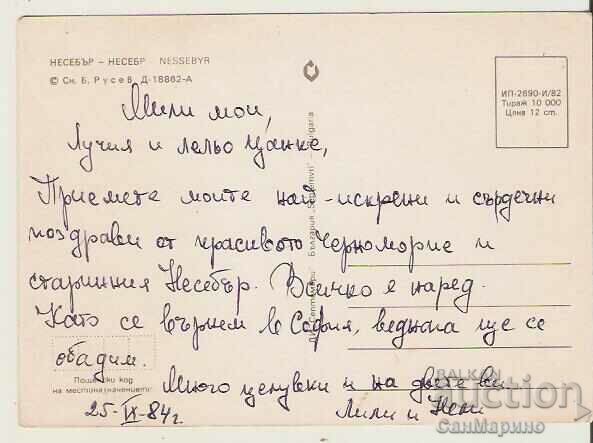 НЕСЕБЪР – НЕСЕБР NESSEBYR
© Сн. Б. Русев Д-18862-А
ИП-2690-И/82
Тираж 10 000
Цена 12 ст.
Мили мои,
Лучия и лельо Цанке,
Приемете моите най-искрени и сърдечни
поздрави от красивото Черноморие и
старинния Несебър. Всичко е наред.
Като се върнем в София, веднага ще се
обадим.
Пощенски код
на местоназначението
Много целувки и на двете ви
25-IX-84г. Лили и
ДИ „Септември“ – България "Septemvri" – Bulgaria
БАЛКАН
auction
СанМарино